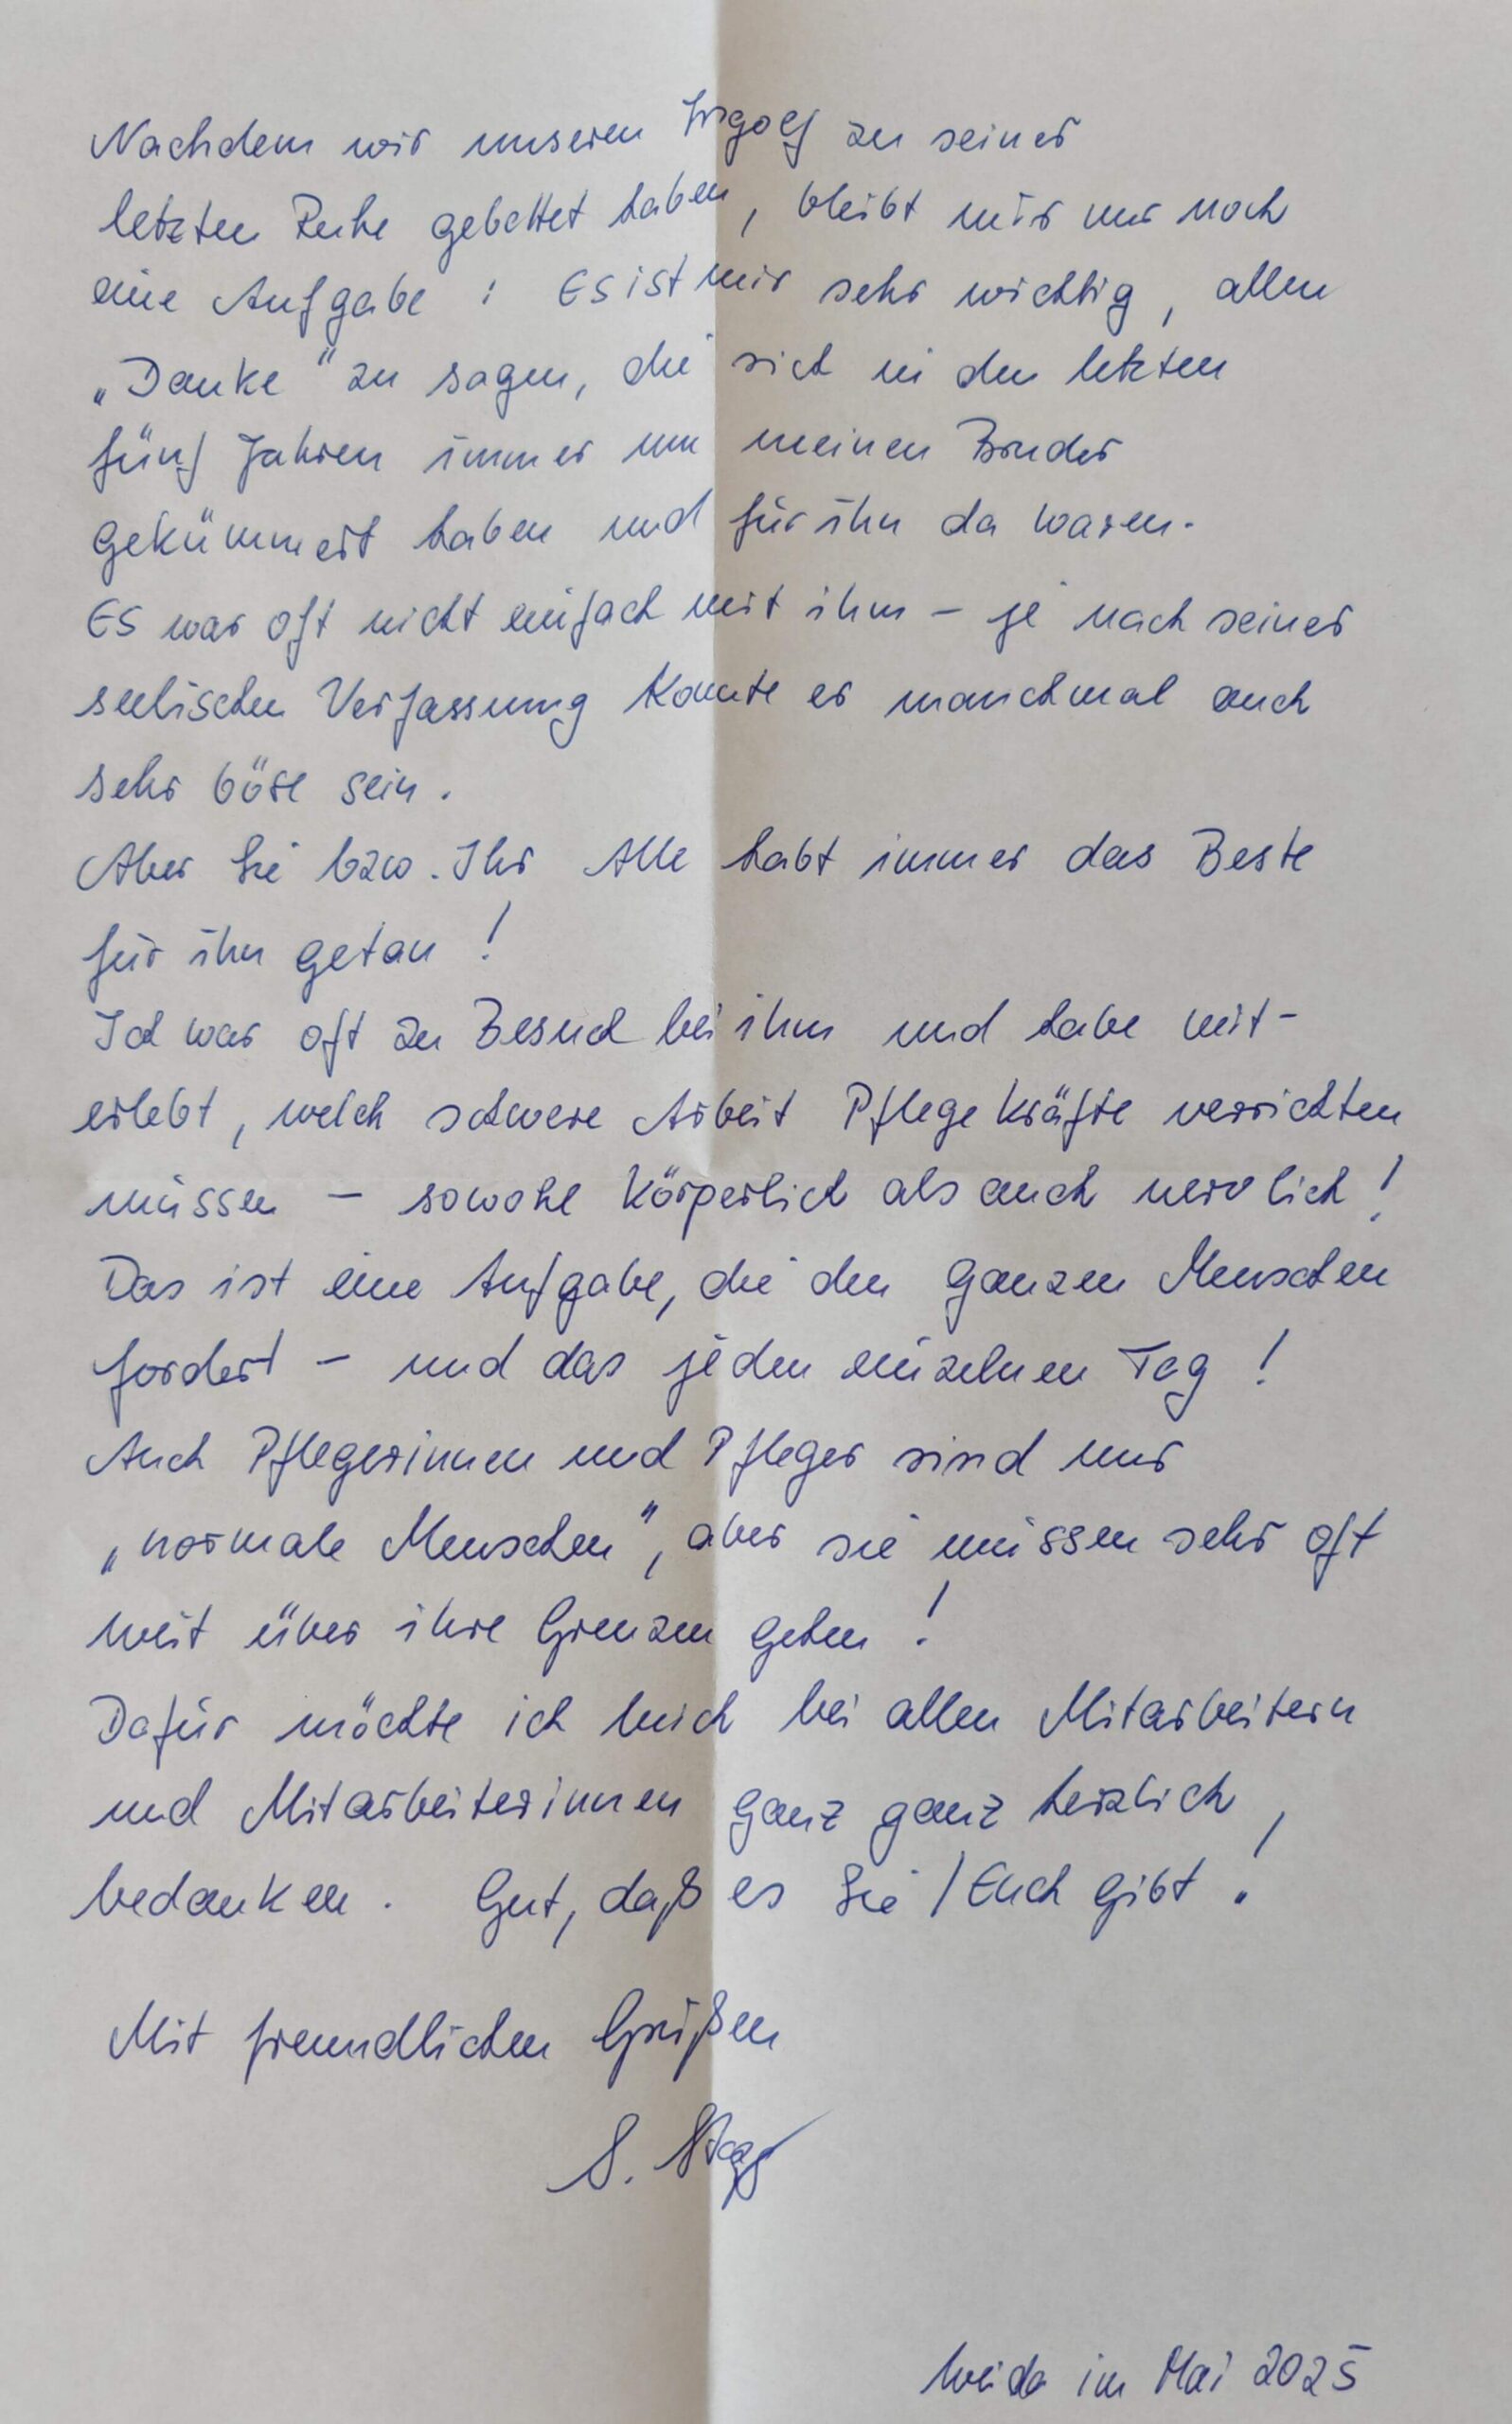 Nachdem wir unseren Ingolf zu seiner
letzten Ruhe gebettet haben, bleibt mir nur noch
eine Aufgabe : Es ist mir sehr wichtig, allen
„Danke“ zu sagen, die sich in den letzten
fünf Jahren immer um meinen Bruder
gekümmert haben und für ihn da waren.
Es war oft nicht einfach mit ihm – je nach seiner
seelischen Verfassung konnte er manchmal auch
sehr böse sein.
Aber Sie bzw. Ihr Alle habt immer das Beste
für ihn getan !
Ich war oft zu Besuch bei ihm und habe mit-
erlebt, welch schwere Arbeit Pflegekräfte verrichten
müssen – sowohl körperlich als auch nervlich !
Das ist eine Aufgabe, die den ganzen Menschen
fordert – und das jeden einzelnen Tag !
Auch Pflegerinnen und Pfleger sind nur
„normale Menschen“, aber sie müssen sehr oft
weit über ihre Grenzen gehen !
Dafür möchte ich mich bei allen Mitarbeitern
und Mitarbeiterinnen ganz ganz herzlich
bedanken. Gut, daß es Sie / Euch gibt !
Mit freundlichen Grüßen
S.
Weida im Mai 2025